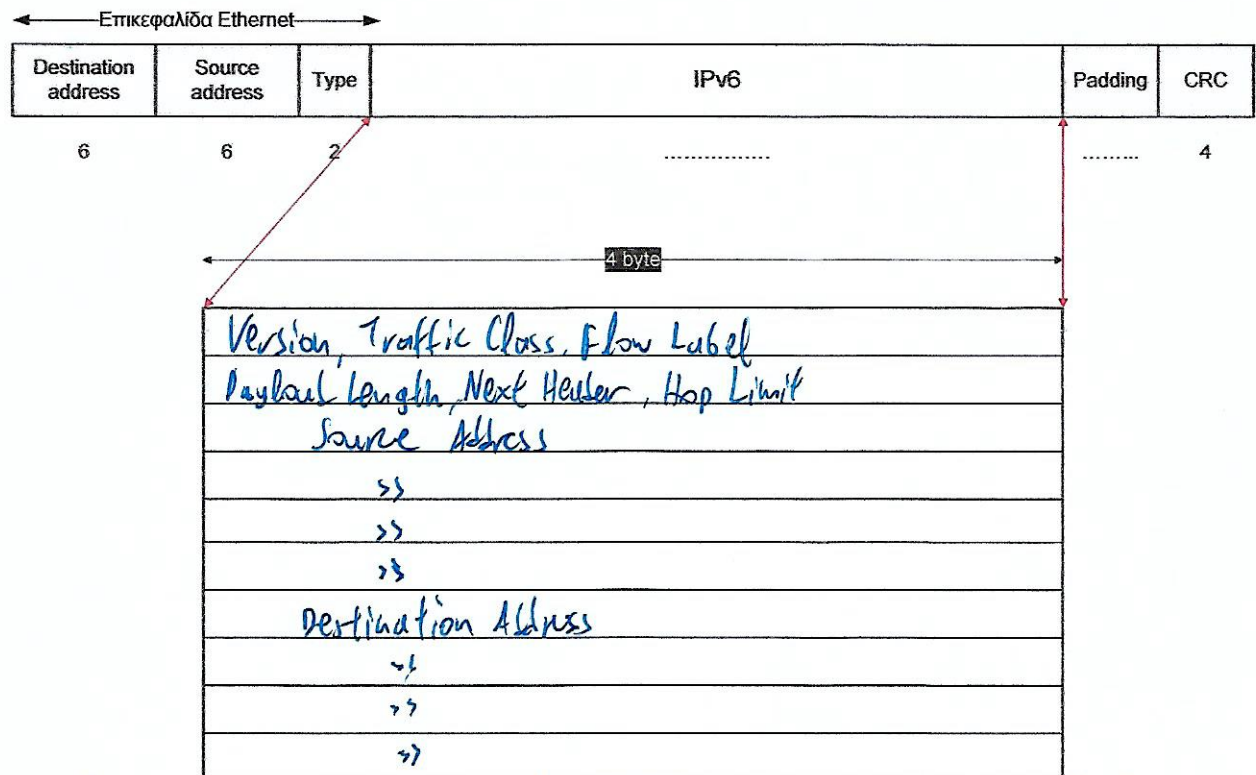 Επικεφαλίδα Ethernet
Destination address Source address Type IPv6 Padding CRC
6 6 2 ............... ......... 4
4 byte
Version, Traffic Class, Flow Label
Payload Length, Next Header, Hop Limit
Source Address
>>
>>
>>
Destination Address
>>
>>
>>